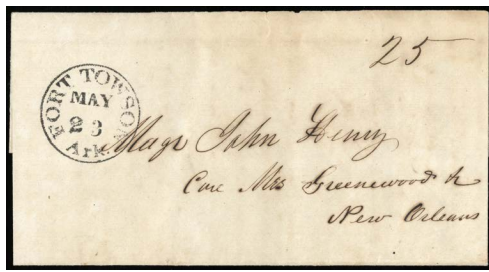 25
FORT TOWSON
MAY
23
Ark.
Majr John Henry
Care Mrs Greenewood &
New Orleans